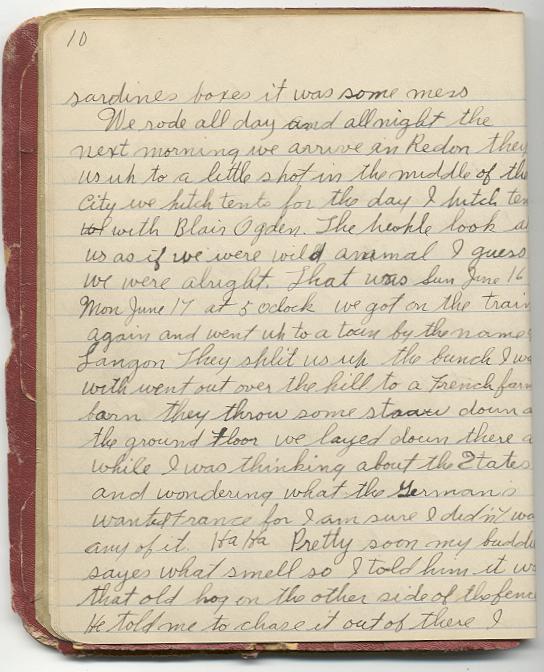 10
sardines boxes it was some mess
We rode all day and all night the
next morning we arrive in Redon they
us up to a little spot in the middle of the
City we pitch tents for the day I pitch ten
with Blair Ogden. The people look a
us as if we were wild animal I guess
we were alright. That was Sun June 16
Mon June 17 at 5 oclock we got on the train
again and went up to a town by the name
Langon They split us up the bunch I wa
with went out over the hill to a French farm
barn they throw some straw down o
the ground floor we layed down there a
while I was thinking about the States
and wondering what the Germans
wanted France for I am sure I didn't wa
any of it. Ha Ha Pretty soon my budd
sayes what smell so I told him it w
that old hog on the other side of the fenc
He told me to chase it out of there I